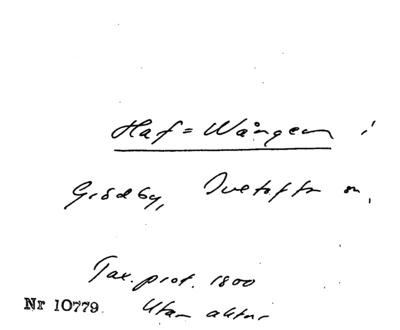 Haf=Wången i
Grödby, Ivetofta sn,
Tax. prot. 1800
Nr 10779. Utan aktnr